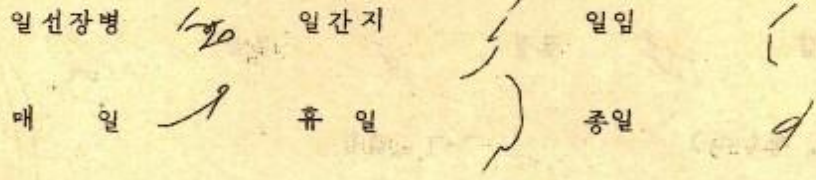 일선장병 일간지 일임
매 일 휴 일 종일